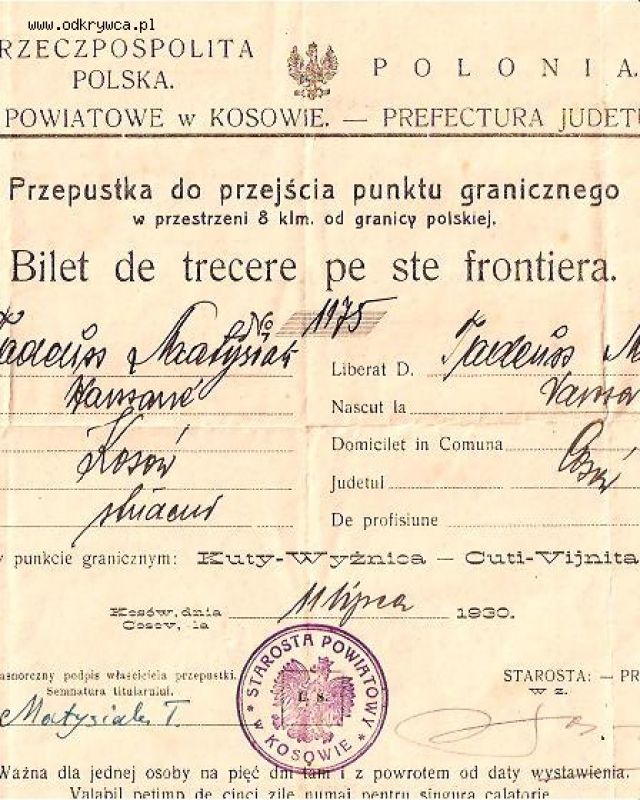 www.odkrywca.pl
RZECZPOSPOLITA
POLSKA.
POLONIA.
POWIATOWE w KOSOWIE. — PREFECTURA JUDETU
Przepustka do przejścia punktu granicznego
w przestrzeni 8 klm. od granicy polskiej.
Bilet de trecere pe ste frontiera.
№ 1975
Tadeusz Matysiak
Liberat D. Tadeusz M
Nascut la
Domicilet in Comuna
Kosów
Judetul
De profisiune
y punkcie granicznym: Kuty-Wyżnica — Cuti-Vijnita
Kosów, dnia 11 lipca 1930.
Cosov, la
STAROSTA POWIATOWY
w KOSOWIE
L. S.
asnoręczny podpis właściciela przepustki.
Semnatura titularului.
Matysiak T.
STAROSTA: — PR
W z.
Ważna dla jednej osoby na pięć dni tam i z powrotem od daty wystawienia.
Valabil petimp de cinci zile numai pentru singura calatorie